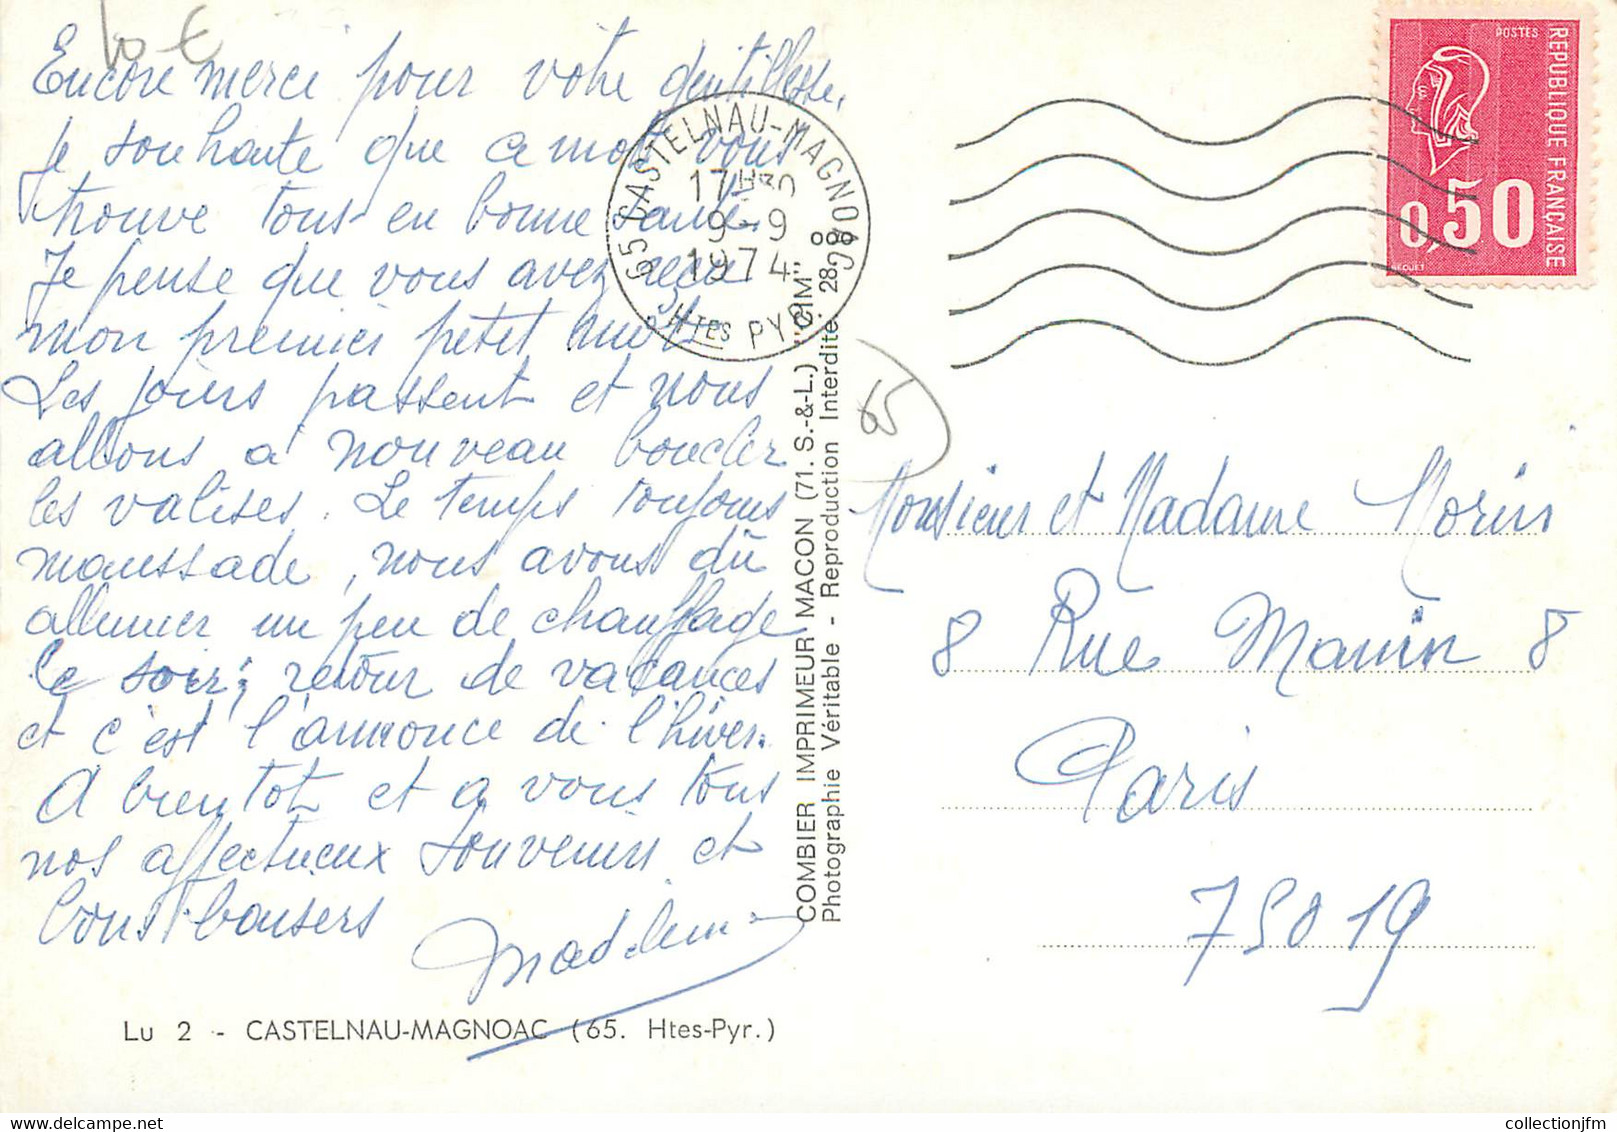 10 €
Encore merci pour votre gentillesse.
Je souhaite que ce mot vous
trouve tous en bonne santé.
Je pense que vous avez reçu
mon premier petit mot.
Les jours passent et nous
allons à nouveau boucler
les valises. Le temps toujours
maussade, nous avons dû
allumer un peu de chauffage
ce soir; retour de vacances
et c'est l'annonce de l'hiver.
A bientot et a vous tous
nos affectueux souvenirs et
bons baisers
Lu 2 - CASTELNAU-MAGNOAC (65. Htes-Pyr.)
65 CASTELNAU-MAGNOAC
17H30
9-9
1974
Htes PYR.
COMBIER IMPRIMEUR MACON (71. S.-&-L.) "CIM"
Photographie Véritable - Reproduction Interdite
65
POSTES
REPUBLIQUE FRANÇAISE
0,50
BEQUET
Monsieur et Madame Morin
8 Rue Manin 8
Paris
75019
collectionjfm